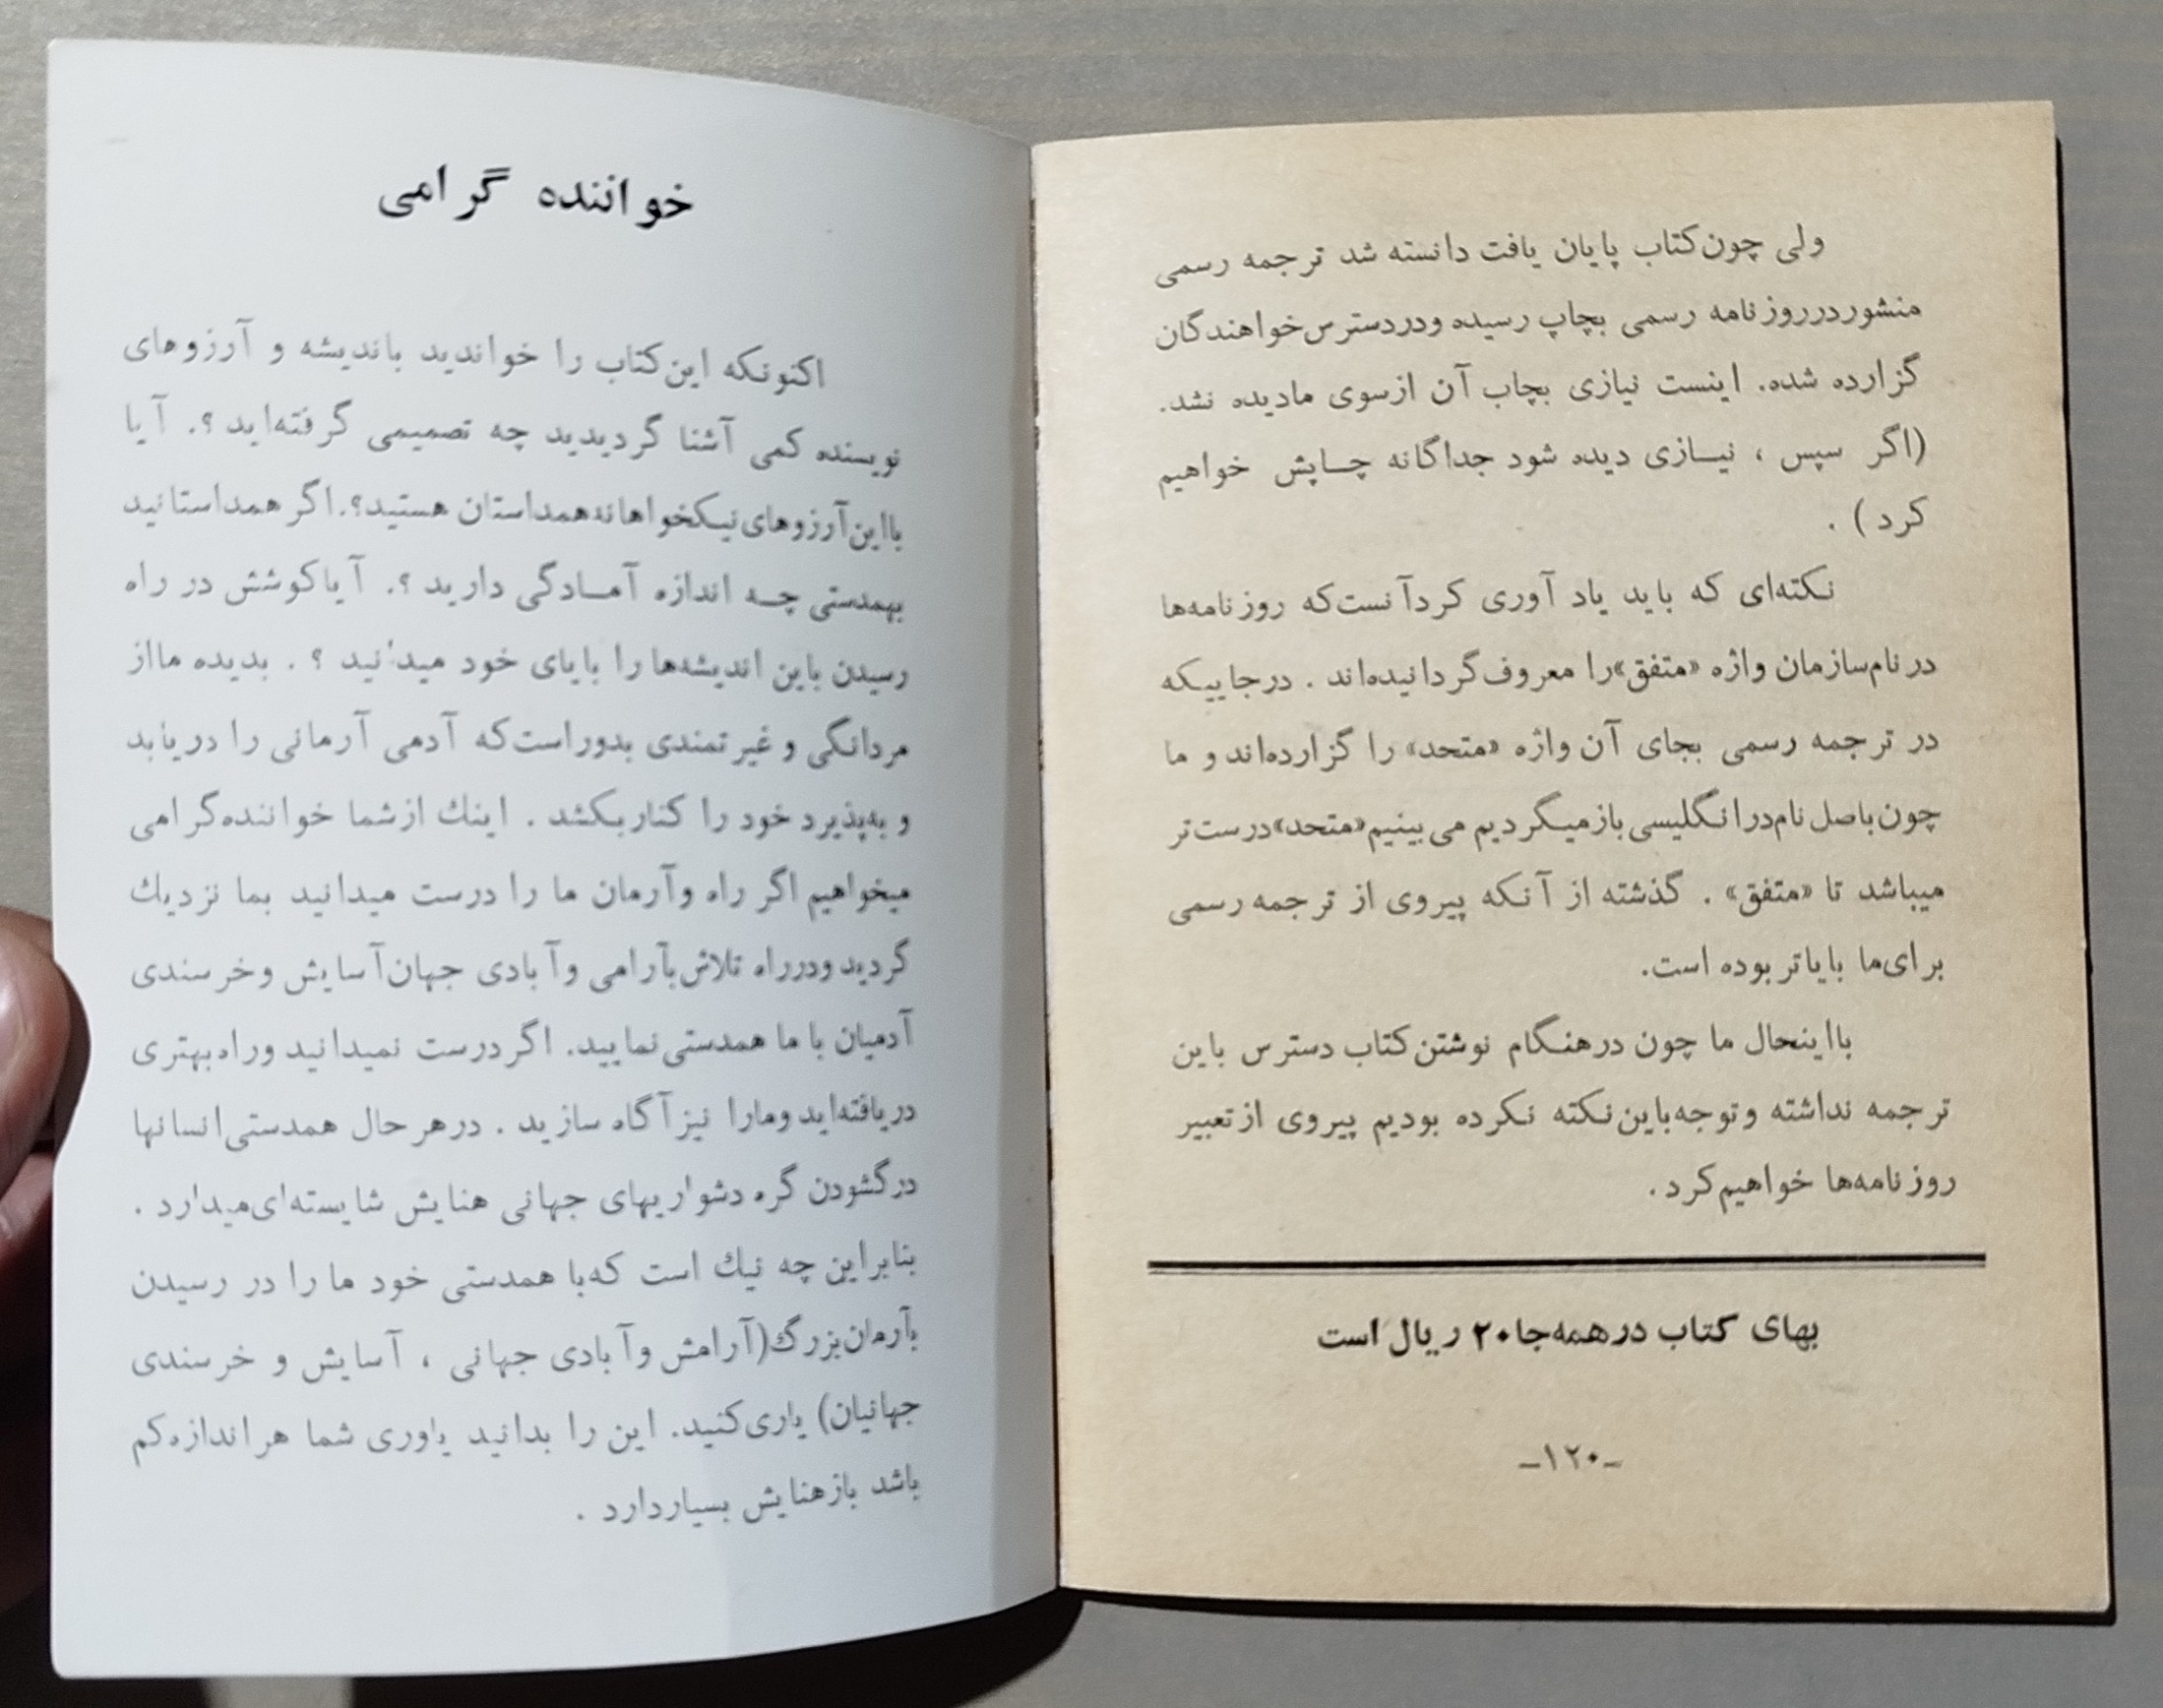 ولی چون کتاب پایان یافت دانسته شد ترجمه رسمی
منشور در روزنامه رسمی بچاپ رسیده و در دسترس خواهندگان
گزارده شده. اینست نیازی بچاپ آن از سوی ما دیده نشد.
(اگر سپس ، نیازی دیده شود جداگانه چاپش خواهیم
کرد ) .
نکته‌ای که باید یاد آوری کرد آنست که روزنامه‌ها
در نام سازمان واژه «متفق» را معروف گردانیده‌اند . در جاییکه
در ترجمه رسمی بجای آن واژه «متحد» را گزارده‌اند و ما
چون باصل نام در انگلیسی باز میگردیم می بینیم «متحد» درست تر
میباشد تا «متفق» . گذشته از آنکه پیروی از ترجمه رسمی
برای ما بایاتر بوده است.
با اینحال ما چون در هنگام نوشتن کتاب دسترس باین
ترجمه نداشته و توجه باین نکته نکرده بودیم پیروی از تعبیر
روزنامه‌ها خواهیم کرد .
بهای کتاب در همه جا ۲۰ ریال است
ـ۱۲۰ـ
خواننده گرامی
اکنونکه این کتاب را خواندید باندیشه و آرزوهای
نویسنده کمی آشنا گردیدید چه تصمیمی گرفته‌اید ؟. آیا
با این آرزوهای نیکخواهانه همداستان هستید؟. اگر همداستانید
بهمدستی چه اندازه آمادگی دارید ؟. آیا کوشش در راه
رسیدن باین اندیشه‌ها را بایای خود میدانید ؟ . بدیده ما از
مردانگی و غیرتمندی بدور است که آدمی آرمانی را دریابد
و به‌پذیرد خود را کنار بکشد . اینك از شما خواننده گرامی
میخواهیم اگر راه و آرمان ما را درست میدانید بما نزدیك
گردید و در راه تلاش بآرامی و آبادی جهان آسایش و خرسندی
آدمیان با ما همدستی نمایید. اگر درست نمیدانید و راه بهتری
دریافته‌اید و ما را نیز آگاه سازید . در هر حال همدستی انسانها
در گشودن گره دشواریهای جهانی هنایش شایسته‌ای میدارد .
بنابراین چه نیك است که با همدستی خود ما را در رسیدن
بآرمان بزرگ (آرامش و آبادی جهانی ، آسایش و خرسندی
جهانیان) یاری کنید. این را بدانید یاوری شما هر اندازه کم
باشد باز هنایش بسیار دارد .